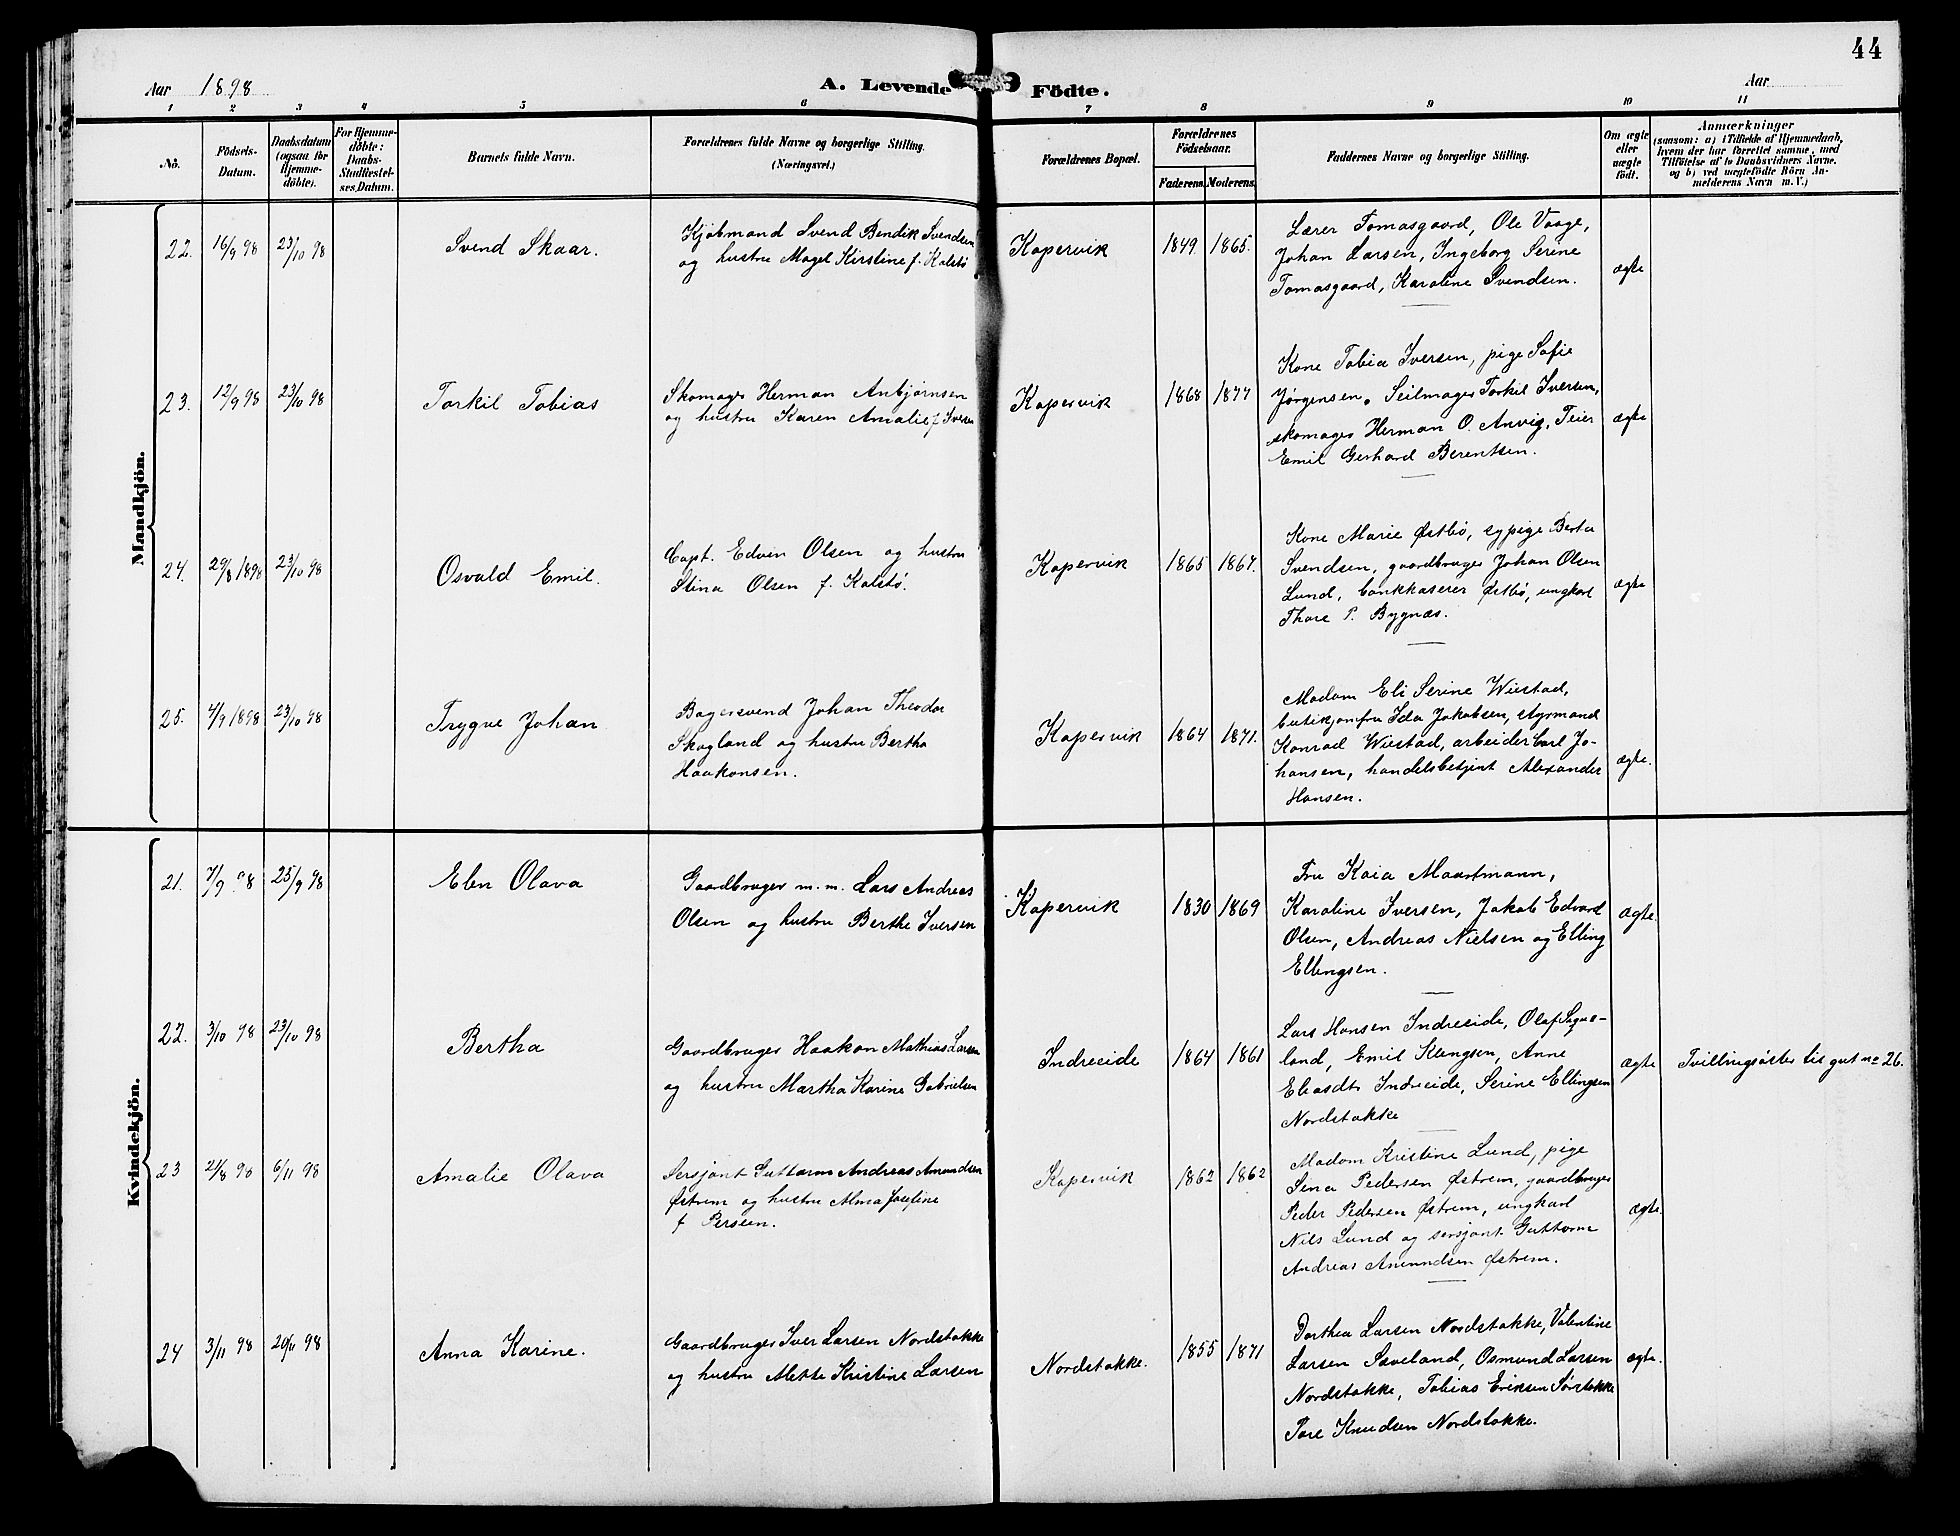 44
Aar 1898
A. Levende Födte.
Aar
1 2 3 4 5 6 7 8 9 10 11
No.
Födsels-
Datum.
Daabsdatum
(ogsaa for
Hjemme-
döbte).
For Hjemme-
döbte:
Daabs-
Stadfæstel-
ses Datum.
Barnets fulde Navn.
Forældrenes fulde Navne og borgerlige Stilling.
(Næringsvei.)
Forældrenes Bopæl.
Forældrenes
Födselsaar.
Faderens. Moderens.
Faddernes Navne og borgerlige Stilling.
Om ægte
eller
uægte
födt.
Anmærkninger
(saasom: a) i Tilfælde af Hjemmedaab,
hvem der har forrettet samme, med
Tilföielse af to Daabsvidners Navne.
og b) ved uægtefödte Börn An-
melderens Navn m. V.)
Mandkjön.
22. 16/9 98 23/10 98
Svend Skaar.
Kjøbmand Svend Bendik Svendsen
og hustru Magel Kirstine f. Kalstø
Kopervik
1849 1865.
Lærer Tomasgaard, Ole Vaage,
Johan Larsen, Ingeborg Serine
Tomasgaard, Karoline Svendsen.
ægte
23. 12/9 98 23/10 98
Torkil Tobias
Skomager Herman Anbjørnsen
og hustru Karen Amalie f. Iversen
Kopervik
1868 1877
Kone Tobia Iversen, pige Sofie
Jørgensen, Seilmager Torkil Iversen,
skomager Herman O. Anvig, Feier
Emil Gerhard Berentsen.
ægte
24. 29/8 1898 23/10 98
Osvald Emil.
Capt. Edvin Olsen og hustru
Stina Olsen f. Kalstø.
Kopervik
1865 1867.
Kone Marie Østbø, sypige Berta
Svendsen, gaardbruger Johan Olsen
Lund, bankkaserer Østbø, ungkarl
Thore P. Bygnæs.
ægte
25. 4/9 1898 23/10 98
Trygve Johan
Bagersvend Johan Theodor
Skogland og hustru Bertha
Haakonsen.
Kopervik
1864 1871.
Madam Eli Serine Wiestad,
butikjomfru Ida Jakobsen, styrmand
Konrad Wiestad, arbeider Carl Jo-
hansen, handelsbetjent Alexander
Hansen.
ægte.
Kvindekjön.
21. 7/9 98 25/9 98
Elen Olava
Gaardbruger m. m. Lars Andreas
Olsen og hustru Berthe Iversen
Kopervik
1830 1869
Fru Kaia Maartmann,
Karoline Iversen, Jakob Edvard
Olsen, Andreas Nielsen og Elling
Ellingsen.
ægte.
22. 3/10 98 23/10 98
Bertha
Gaardbruger Haakon Mathias Larsen
og hustru Martha Karine Gabrielsen
Indreeide
1864 1861
Lars Hansen Indreeide, Olaf Sque-
land, Emil Klengsen, Anne
Eliasdtr Indreeide, Serine Ellingsen
Nordstokke
ægte
Tvillingsøster til gut no 26.
23 21/8 98 6/11 98
Amalie Olava
Sersjant Guttorm Andreas Amundsen
Østrem og hustru Alma Josefine
f. Persen.
Kopervik
1862 1862
Madam Kristine Lund, pige
Sena Pedersen Østrem, gaardbruger
Peder Pedersen Østrem, ungkarl
Nils Lund og sersjant Guttorm
Andreas Amundsen Østrem.
ægte.
24 3/11 98 20/11 98
Anna Karine.
Gaardbruger Iver Larsen Nordstokke
og hustru Mette Kristine Larsen
Nordstokke.
1855 1871
Dorthea Larsen Nordstokke, Valentine
Larsen Sæveland, Osmund Larsen
Nordstokke, Tobias Eriksen Sørstokke
Tore Knudsen Nordstokke.
ægte.